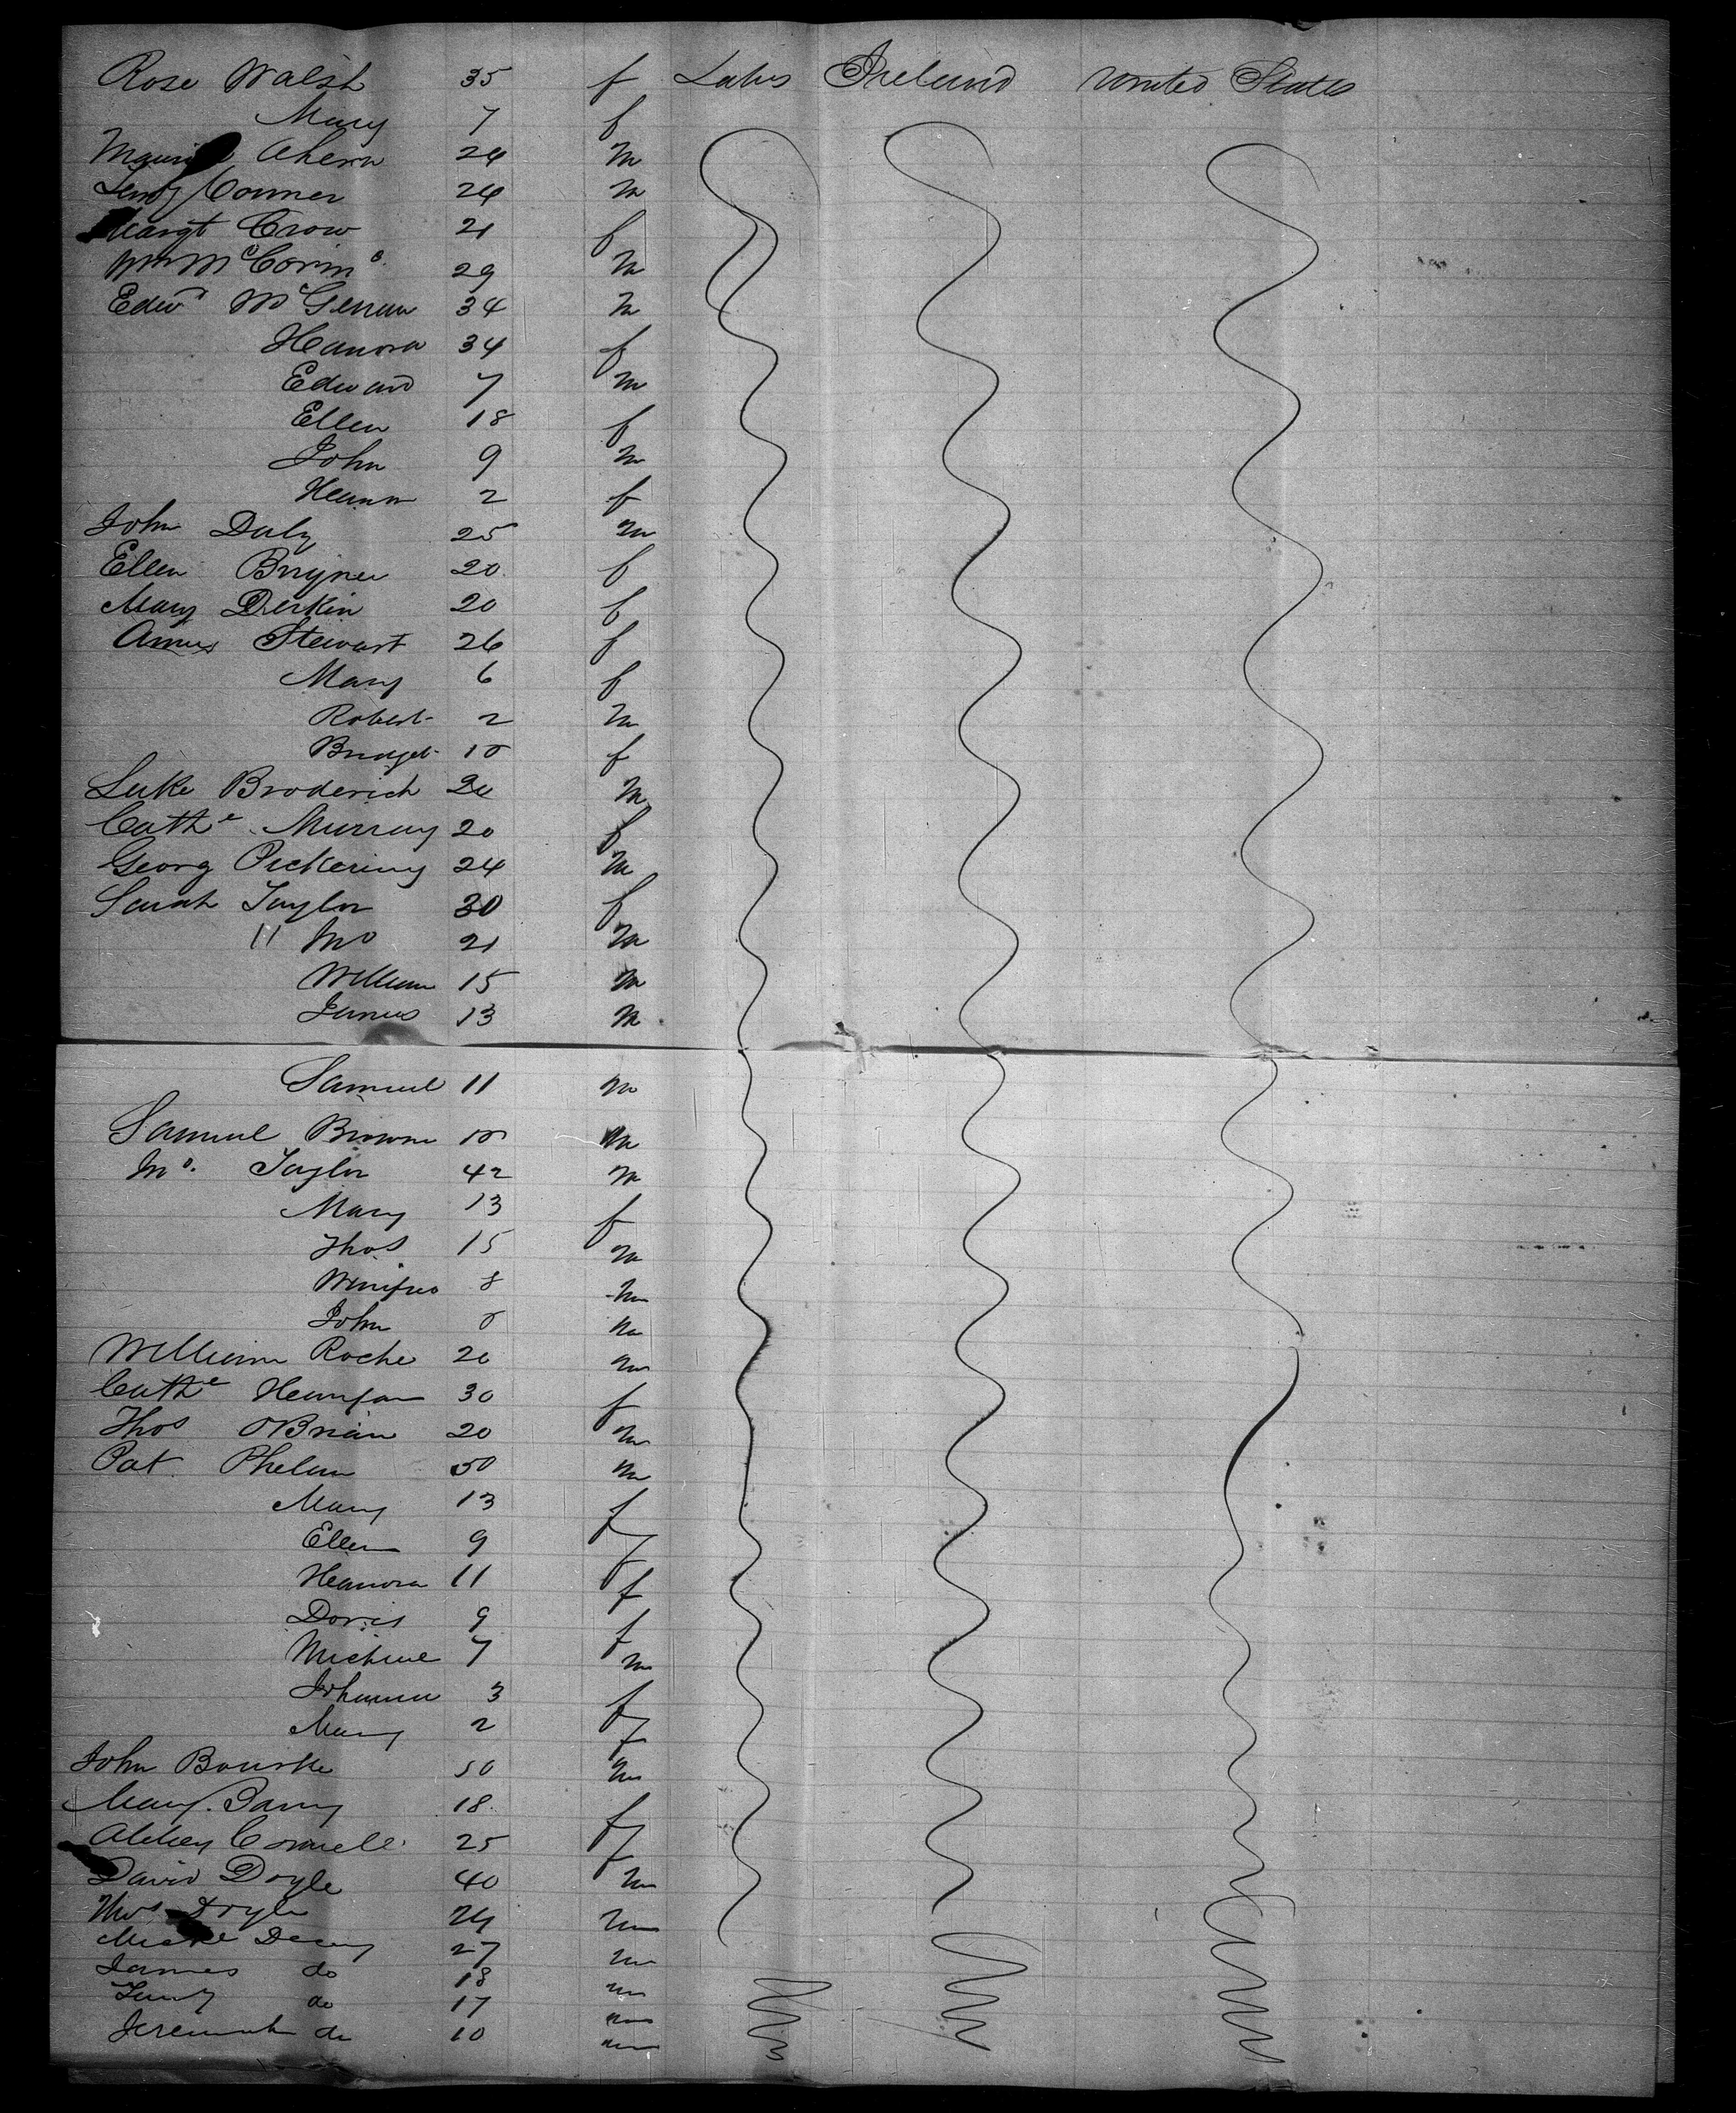 Rose Walsh 35 f Labrs Ireland United States
Mary 7 f
Ahern 24 m
Conner 24 m
Margt Crow 21 f
Wm 29 m
Edwd 34 m
Hanora 34 f
Edward 7 m
Ellen 18 f
John 9 m
2 f
John Daly 25 m
Ellen 20 f
Mary Derkin 20 f
Stewart 26 f
Mary 6 f
Robert 2 m
Bridget 10 f
Luke Broderick 20 m
Cathe Murray 20 f
Georg Pickering 24 m
Sarah Taylor 30 f
" 21 m
William 15 m
James 13 m
Samuel 11 m
Samuel Brown m
Taylor 42 m
Mary 13 f
Thos 15 m
8 m
John m
William Roche 20 m
Cathe 30 f
Thos OBrian 20 m
Pat Phelan 50 m
Mary 13 f
Ellen 9 f
Hanora 11 f
9 f
7 m
Johanna 3 f
Mary 2 f
John Bourke 50 m
Mary 18 f
Connell 25 f
David Doyle 40 m
Thos Doyle 24 m
27 m
James do 18 m
do 17 m
Jeremiah do 10 m